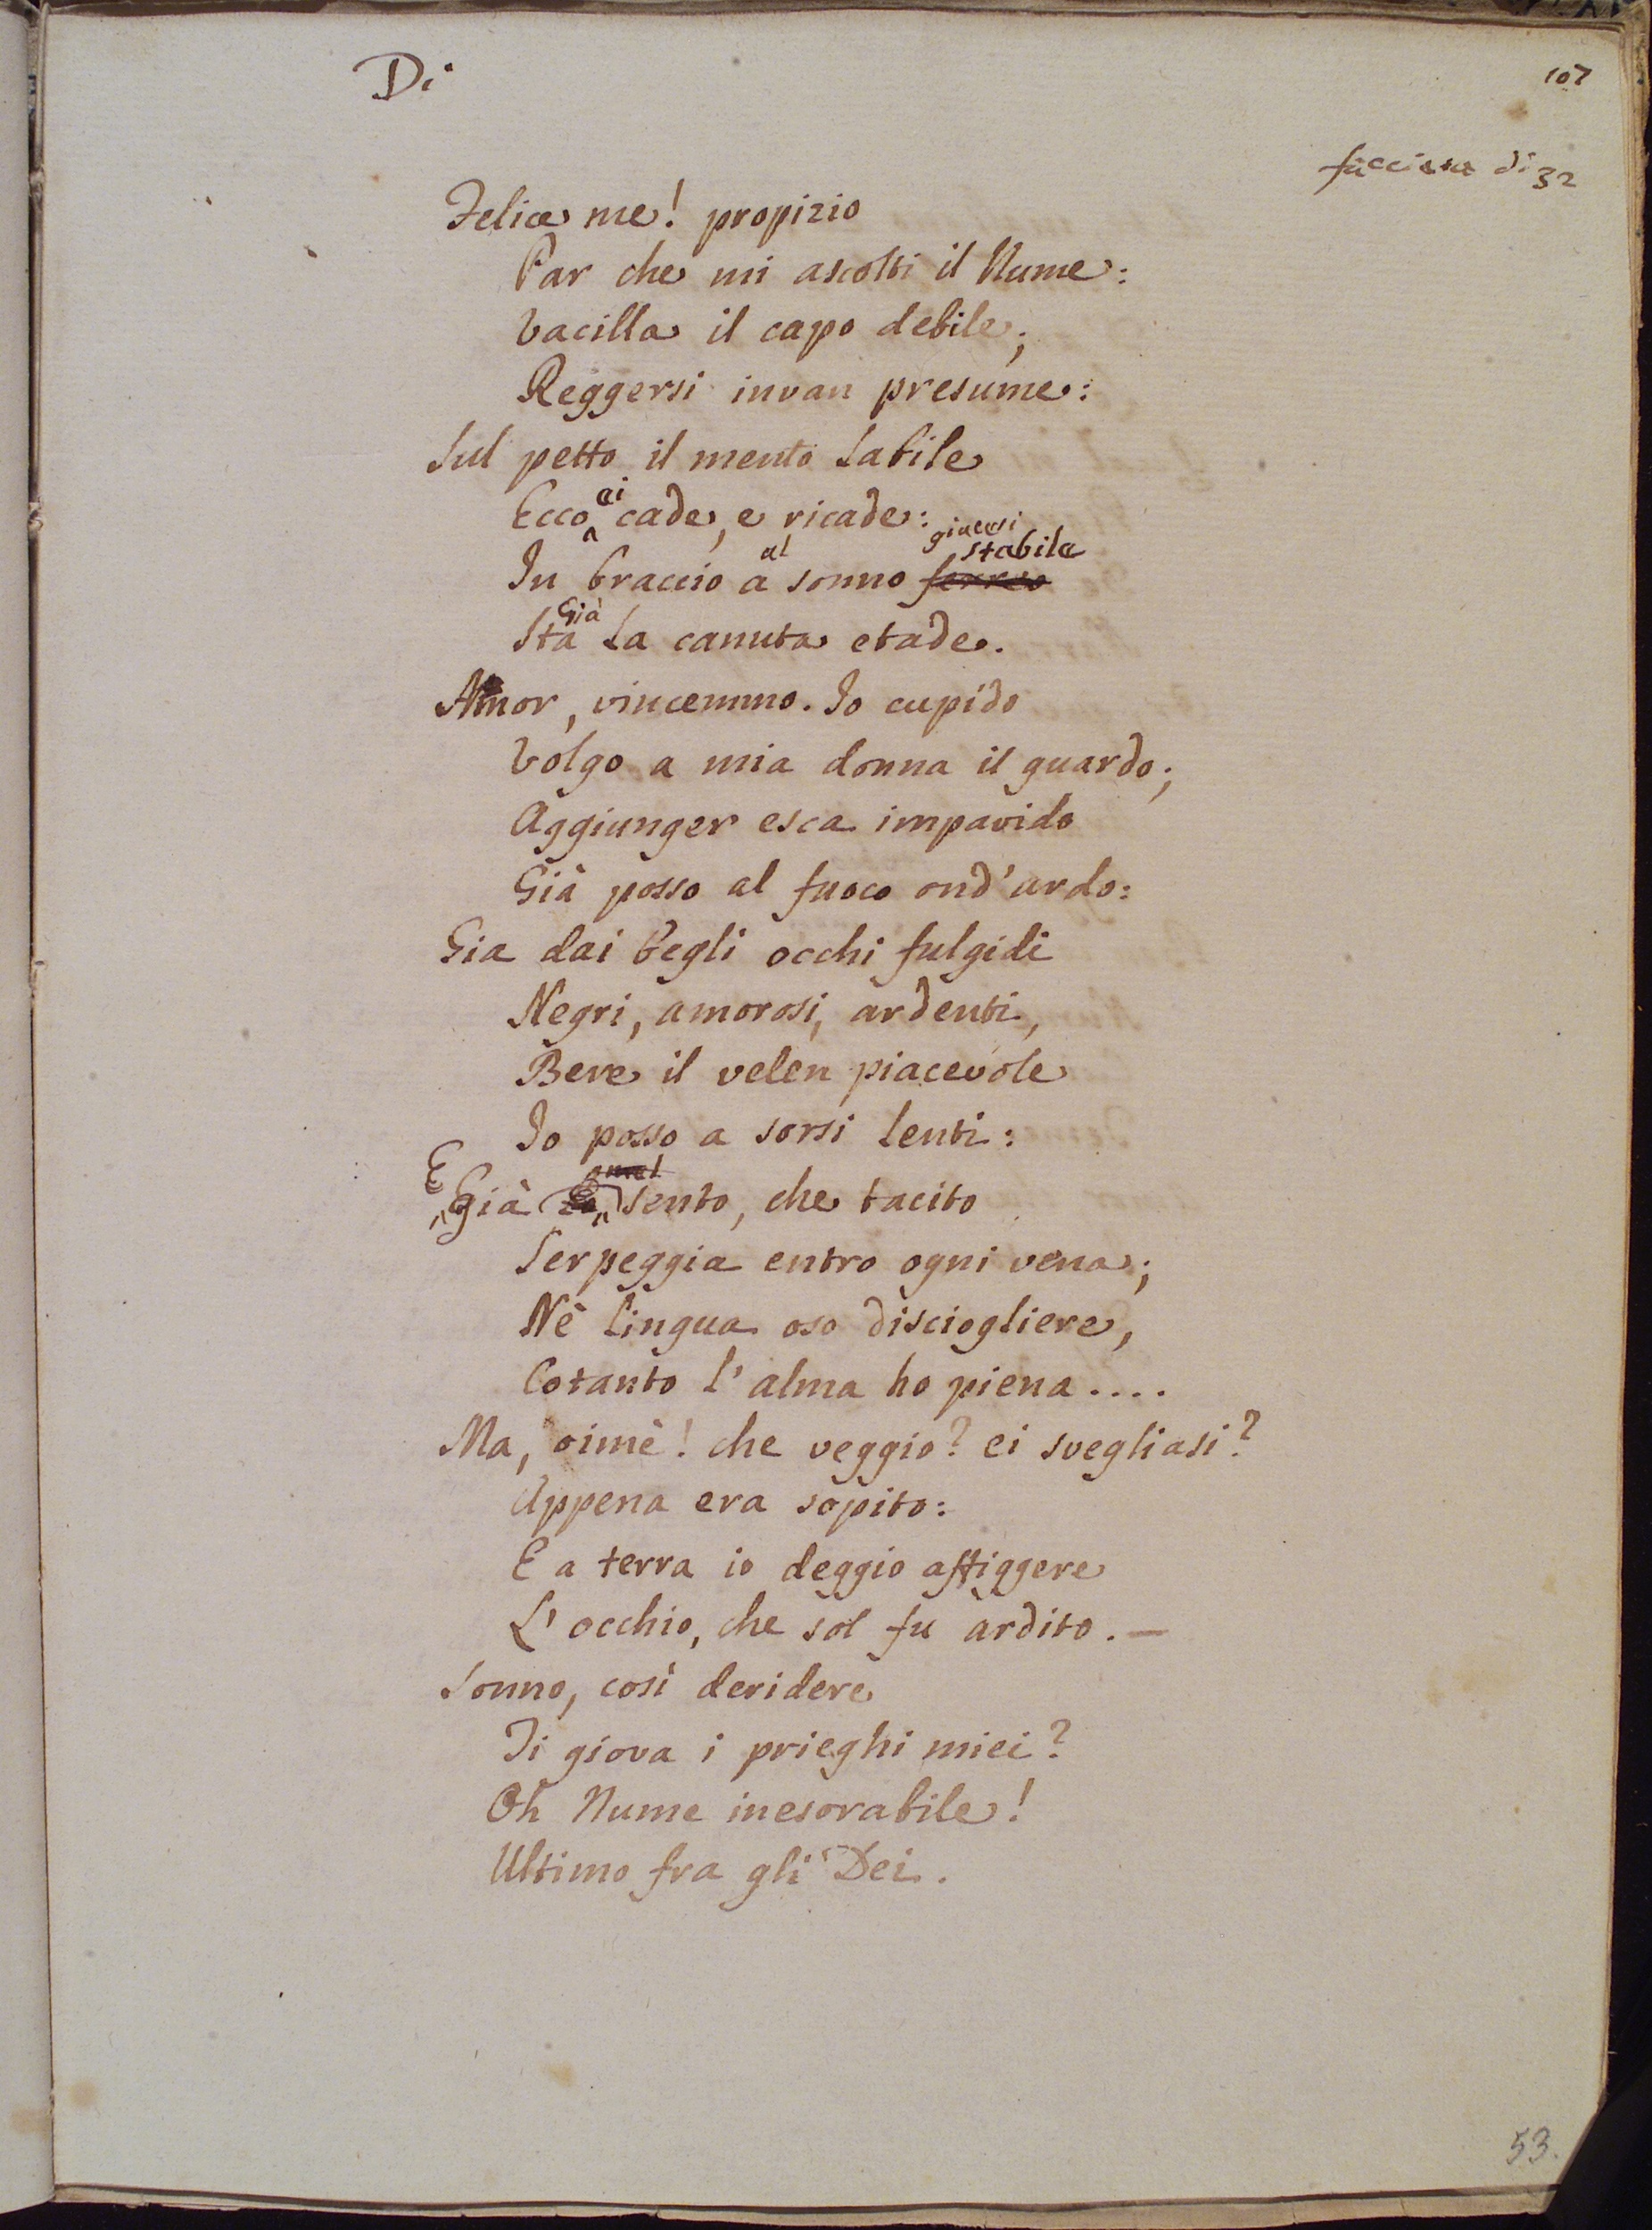 Di
107
facciata di 32
Felice me! propizio
Par che mi ascolti il Nume:
Vacilla il capo debile;
Reggersi invan presume:
Sul petto il mento labile
Ecco ei cade, e ricade:
giacesi
al stabile
In braccio a sonno ferreo
Già
Sta la canuta etade.
Amor, vincemmo. Io cupido
Volgo a mia donna il guardo;
Aggiunger esca impavido
Già posso al fuoco ond'ardo:
Gia dai begli occhi fulgidi
Negri, amorosi, ardenti,
Bere il velen piacevole
Io posso a sorsi lenti:
E Già sento, che tacito
Serpeggia entro ogni vena;
Nè lingua oso disciogliere,
Cotanto l'alma ho piena....
Ma, oimè! che veggio? ei svegliasi?
Appena era sopito:
E a terra io deggio affiggere
L'occhio, che sol fu ardito.—
Sonno, così deridere
Ti giova i prieghi miei?
Oh Nume inesorabile!
Ultimo fra gli Dei.
53.